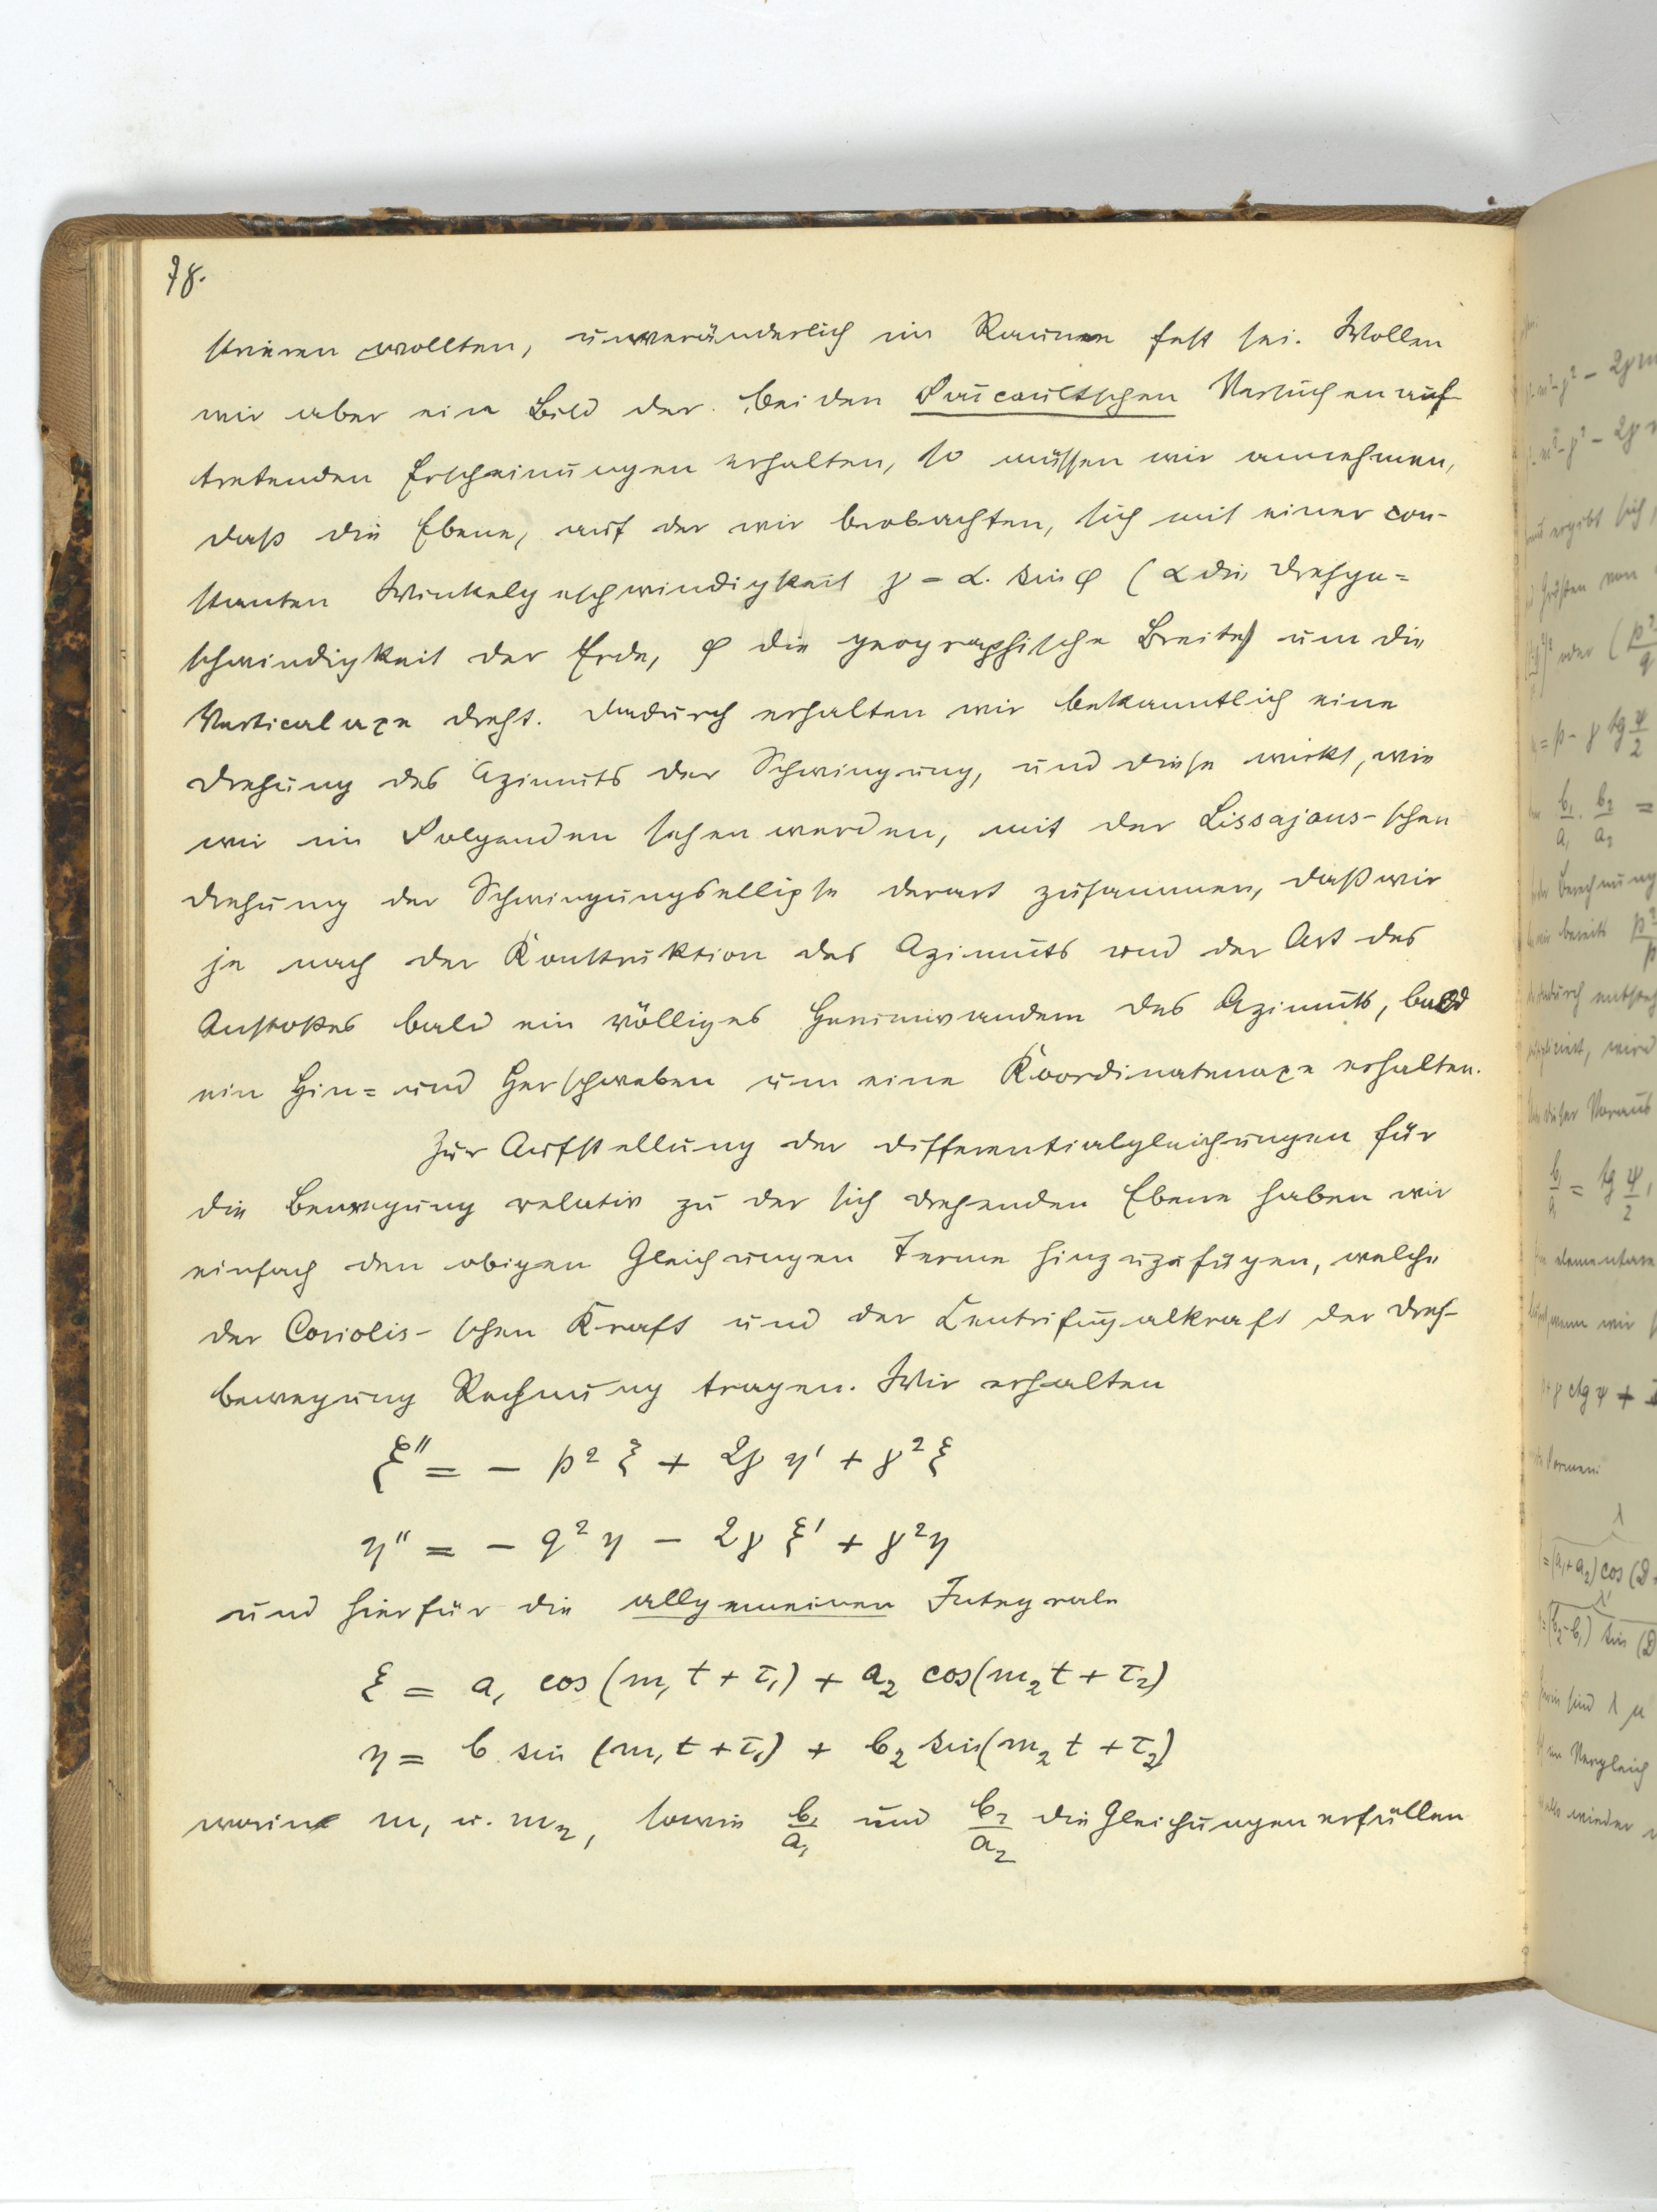 78.
strieren wollten, unveränderlich im Raume fest sei. Wollen
wir aber ein Bild der bei den Foucaultschen Versuchen auf-
tretenden Erscheinungen erhalten, so müssen wir annehmen,
daß die Ebene, auf der wir beobachten, sich mit einer con-
stanten Winkelgeschwindigkeit γ = α. sin φ (α die Drehge=
schwindigkeit der Erde, φ die geographische Breite) um die
Verticalaxe dreht. Dadurch erhalten wir bekanntlich eine
Drehung des Azimuts der Schwingung, und diese wirkt, wie
wir im Folgenden sehen werden, mit der Lissajous-schen
Drehung der Schwingungsellipse derart zusammen, daß wir
je nach der Konstruktion des Azimuts und der Art des
Anstoßes bald ein völliges Herumwandern des Azimuts, bald
ein Hin= und Herschweben um eine Koordinatenaxe erhalten.
Zur Aufstellung der Differentialgleichungen für
die Bewegung relativ zu der sich drehenden Ebene haben wir
einfach den obigen Gleichungen Terme hinzuzufügen, welche
der Coriolis-schen Kraft und der Centrifugalkraft der Dreh-
bewegung Rechnung tragen. Wir erhalten
ξ'' = - p² ξ + 2γ η' + γ² ξ
η'' = - q² η - 2γ ξ' + γ² η
und hierfür die allgemeinen Integrale
ξ = a₁ cos (m₁ t + τ₁) + a₂ cos(m₂ t + τ₂)
η = b sin (m₁ t + τ₁) + b₂ sin(m₂ t + τ₂)
worin m₁ u. m₂, sowie b₁/a₁ und b₂/a₂ die Gleichungen erfüllen